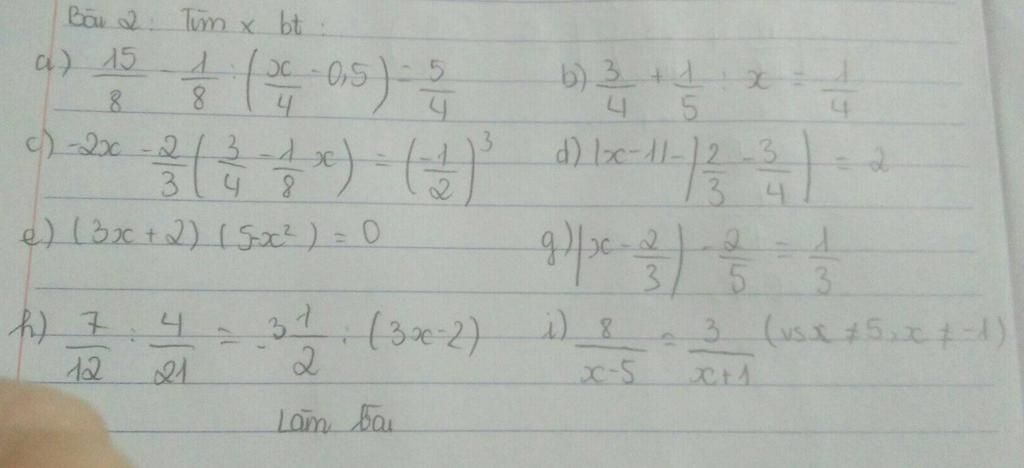 Bài 2: Tìm x bt:
a) 15/8 - 1/8 : (x/4 - 0,5) = 5/4 b) 3/4 + 1/5 : x = 1/4
c) -2x - 2/3 (3/4 - 1/8 x) = (-1/2)³ d) |x-1| - |2/3 - 3/4| = 2
e) (3x+2) (5-x²) = 0 g) |x - 2/3| - 2/5 = 1/3
h) 7/12 : 4/21 = -3 1/2 : (3x-2) i) 8/(x-5) = 3/(x+1) (vs x ≠ 5, x ≠ -1)
Làm bài